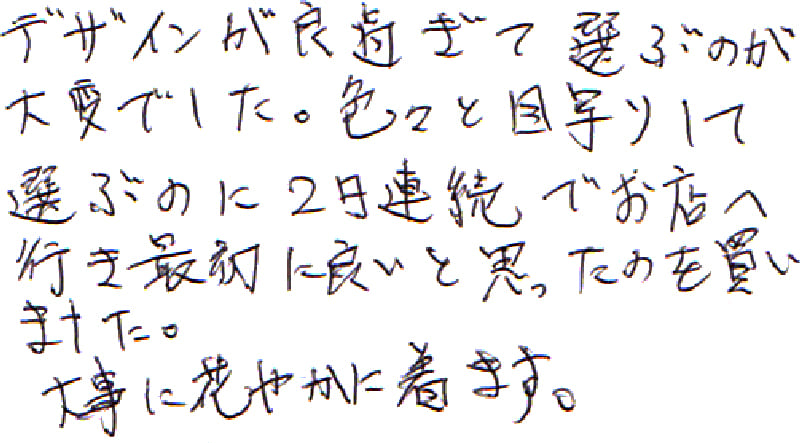 デザインが良過ぎて選ぶのが
大変でした。色々と目写りして
選ぶのに2日連続でお店へ
行き最初に良いと思ったのを買い
ました。
大事に花やかに着ます。